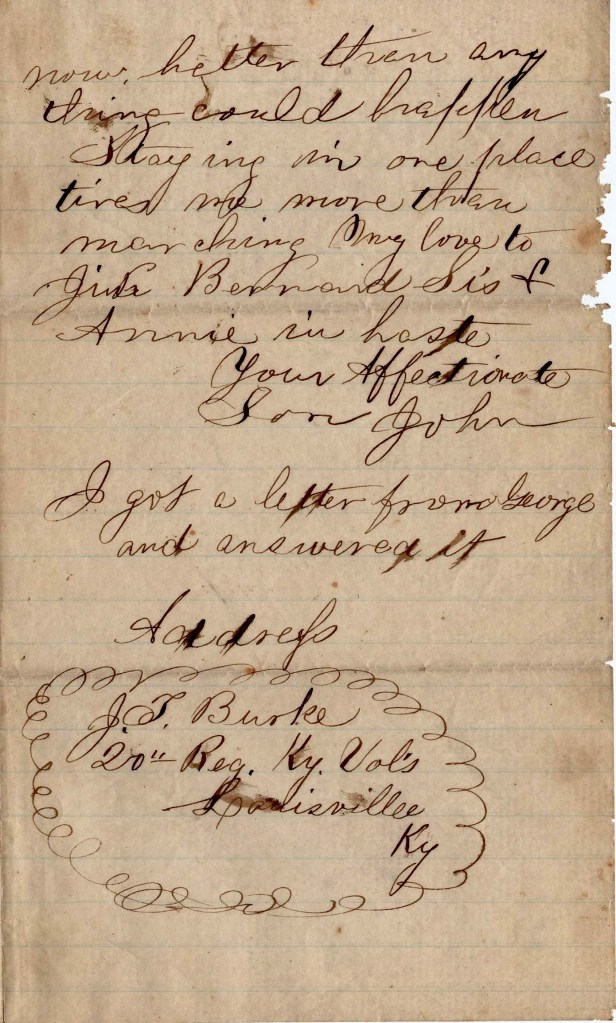 now, better than any
thing could happen
Staying in one place
tires me more than
marching My love to
Bernard Sis &
Annie in haste
Your Affectionate
Son John
I got a letter from George
and answered it
Address
J. T. Burke
20" Reg. Ky. Vol's
Louisville
Ky